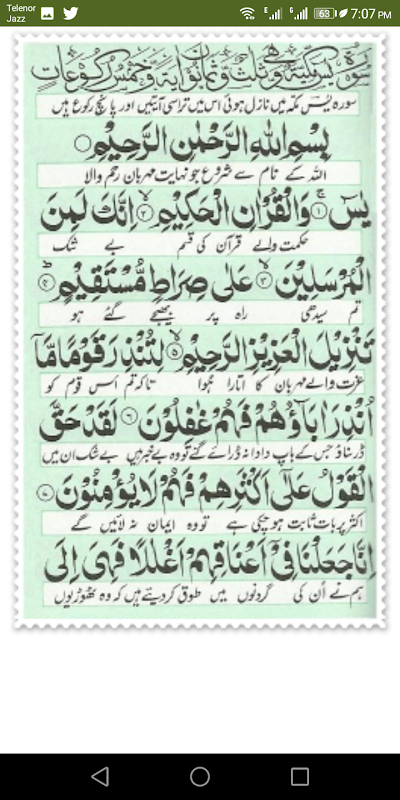 Telenor
Jazz
63
7:07 PM
سورة يس مكية وهي ثلث وثمانون اية وخمس ركوعات
سورہ یٰسٓ مکہ میں نازل ہوئی اس میں تراسی آیتیں اور پانچ رکوع ہیں
بِسْمِ اللهِ الرَّحْمٰنِ الرَّحِيْمِ
اللہ کے نام سے شروع جو نہایت مہربان رحم والا
يٰسٓ ۚ﴿۱﴾ وَالْقُرْاٰنِ الْحَكِيْمِ ۙ﴿۲﴾ اِنَّكَ لَمِنَ
حکمت والے قرآن کی قسم بے شک
الْمُرْسَلِيْنَ ۙ﴿۳﴾ عَلٰى صِرَاطٍ مُّسْتَقِيْمٍ ؕ﴿۴﴾
تم سیدھی راہ پر بھیجے گئے ہو
تَنْزِيْلَ الْعَزِيْزِ الرَّحِيْمِ ۙ﴿۵﴾ لِتُنْذِرَ قَوْمًا مَّاۤ
عزت والے مہربان کا اتارا ہوا تاکہ تم اس قوم کو
اُنْذِرَ اٰبَآؤُهُمْ فَهُمْ غٰفِلُوْنَ ﴿۶﴾ لَقَدْ حَقَّ
ڈر سناؤ جس کے باپ دادا نہ ڈرائے گئے تو وہ بے خبر ہیں بے شک ان میں
الْقَوْلُ عَلٰۤى اَكْثَرِهِمْ فَهُمْ لَا يُؤْمِنُوْنَ ﴿۷﴾
اکثر پر بات ثابت ہو چکی ہے تو وہ ایمان نہ لائیں گے
اِنَّا جَعَلْنَا فِيْۤ اَعْنَاقِهِمْ اَغْلٰلًا فَهِيَ اِلَى
ہم نے اُن کی گردنوں میں طوق کر دیئے ہیں کہ وہ ٹھوڑیوں